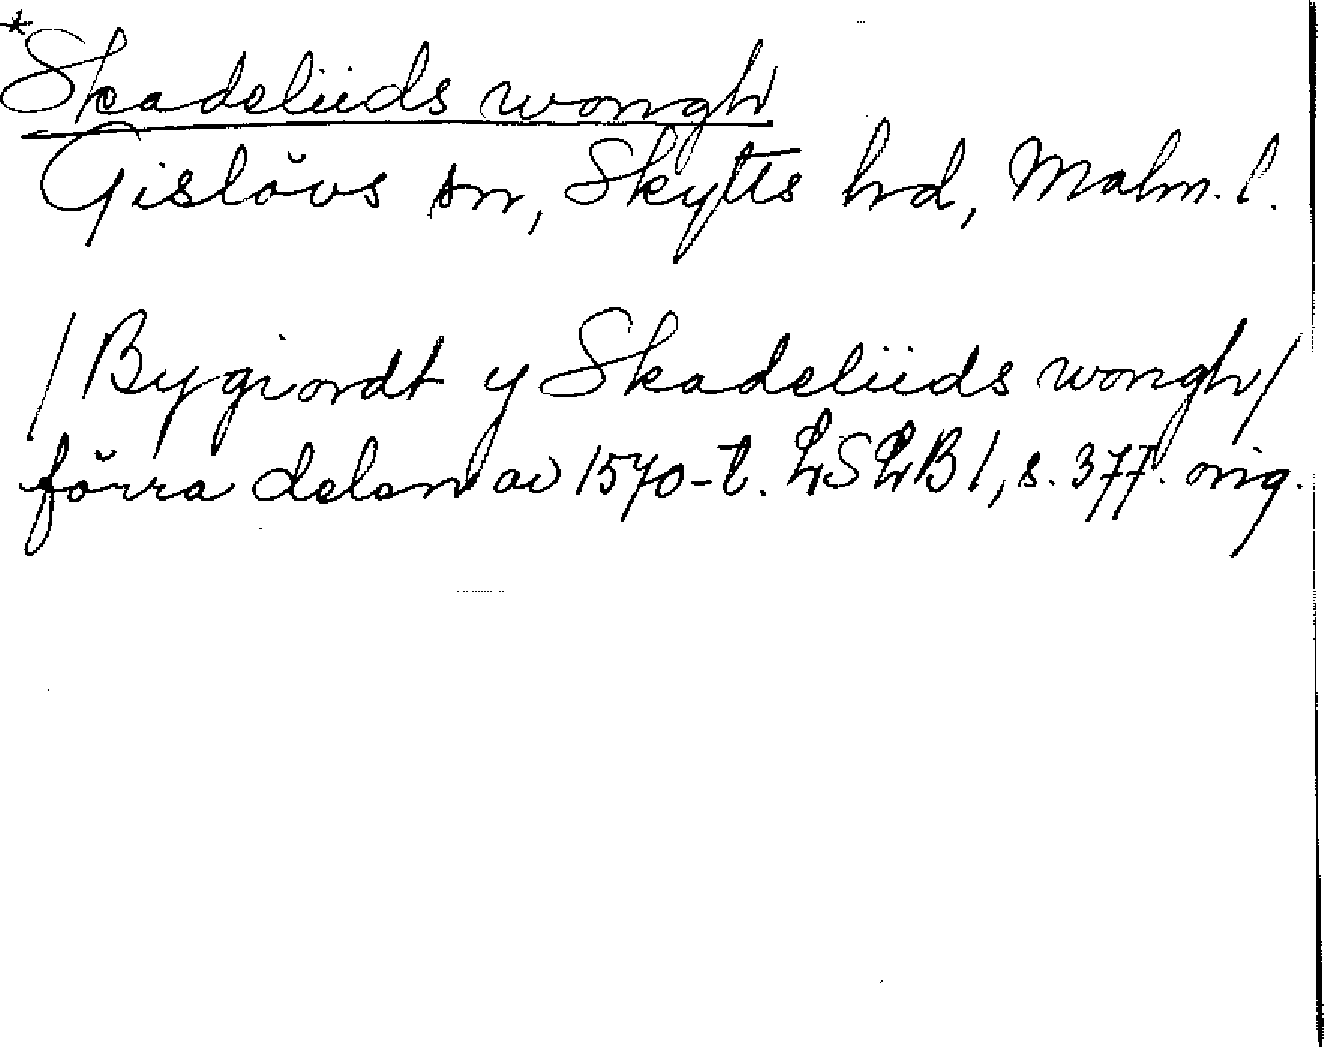 *Skadeliids wongh
Gislövs sn, Skytts hd, Malm. l.
/Bygiordt y Skadeliids wongh/
förra delen av 1570-t. LSLB 1, s. 377. orig.